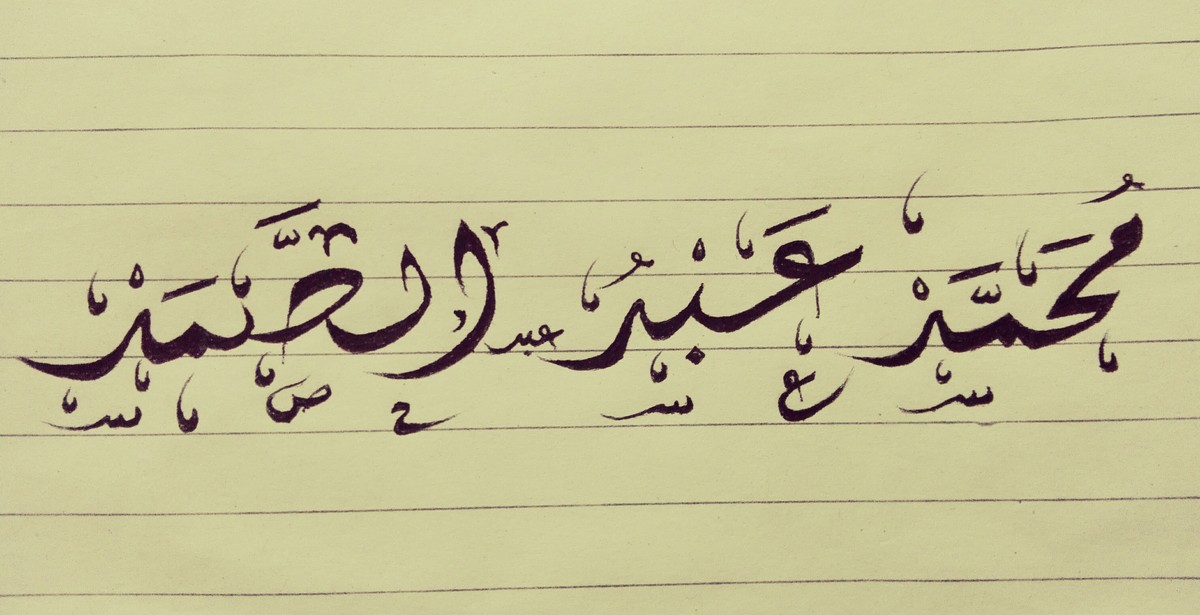 مُحَمَّدْ عَبْدُ الصَّمَدْ